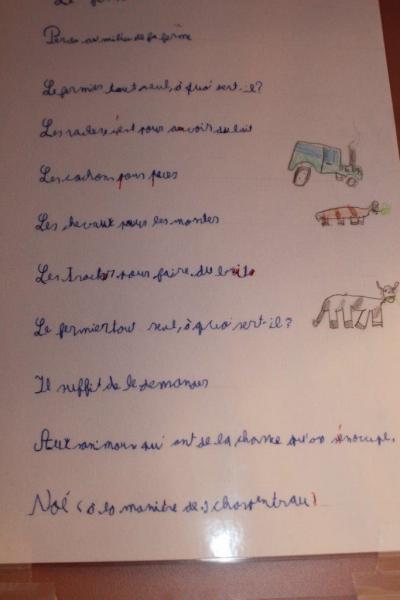 La ferme
Perdu au milieu de sa ferme
Le fermier tout seul, à quoi sert-il?
Les vaches c'est pour avoir du lait
Les cochons pour
Les chevaux pour les monter
Les tracteurs pour faire du bruit
Le fermier tout seul, à quoi sert-il?
Il suffit de le demander
Aux animaux qui ont de la chance qu'on s'en occupe.
Noé (à la manière de J Charpentreau)